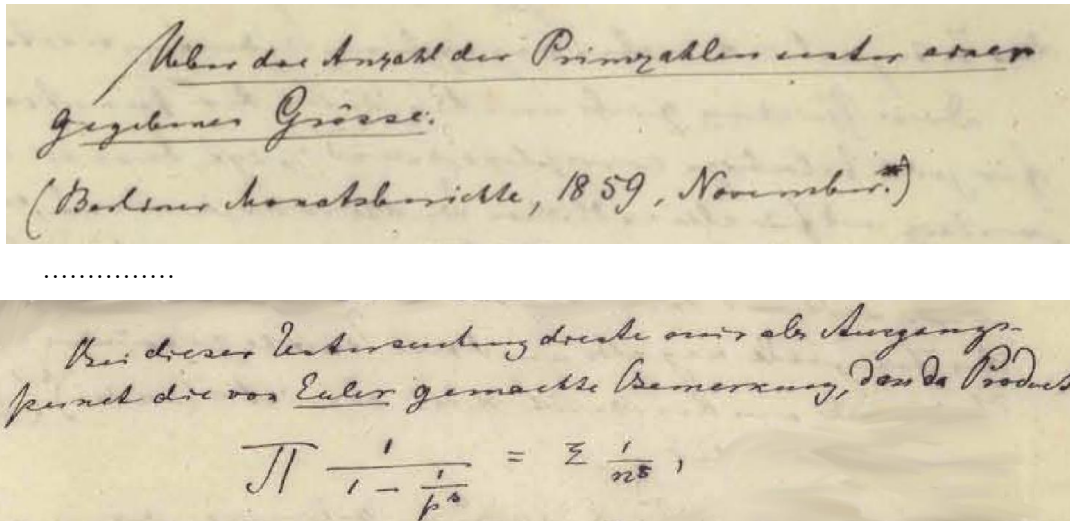 Ueber die Anzahl der Primzahlen unter einer
gegebenen Grösse.
(Berliner Monatsberichte, 1859, November.*)
...............
Bei dieser Untersuchung diente mir als Ausgangs-
punkt die von Euler gemachte Bemerkung, dass das Product
∏ 1/(1 − 1/p^s) = Σ 1/n^s,